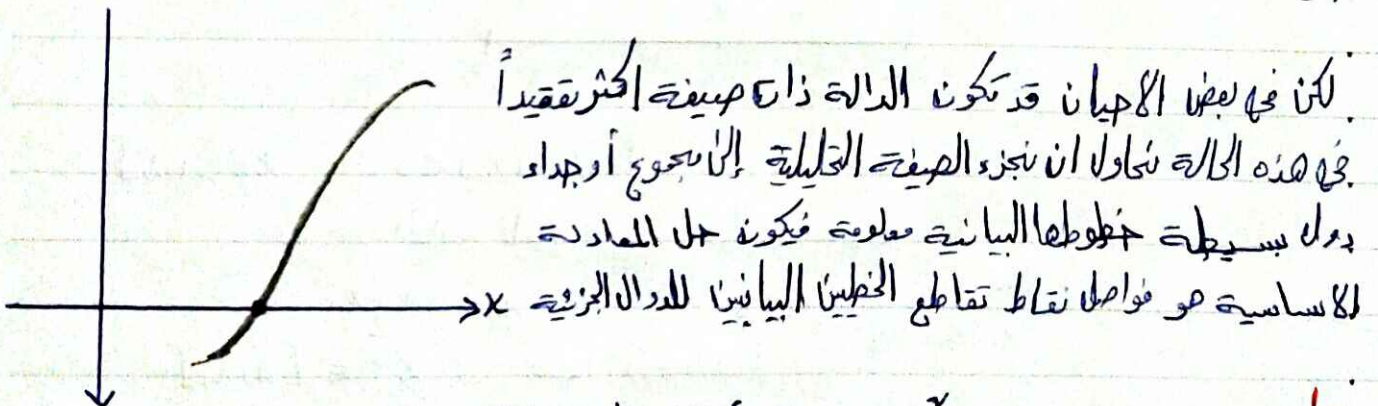 لكن في بعض الاحيان قد تكون الدالة ذات صيغة اكثر تعقيداً
في هذه الحالة نحاول ان نجزء الصيغة التحليلية إلى مجموع أو جداء
دوال بسيطة خطوطها البيانية معلومة فيكون حل المعادلة
الاساسية هو فواصل نقاط تقاطع الخطيين البيانيين للدوال الجزئية
x